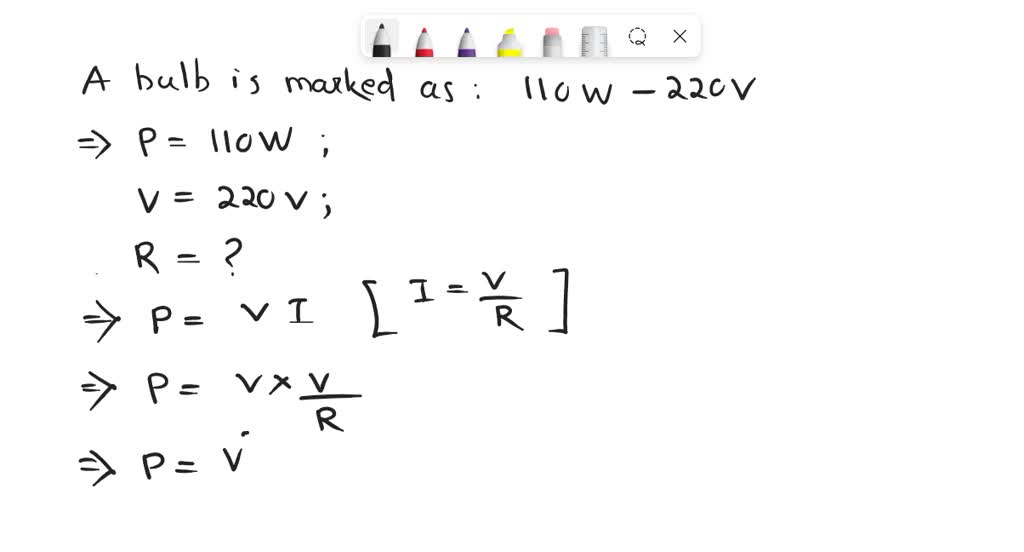 A bulb is marked as: 110W - 220V
⇒ P = 110W ;
V = 220V ;
R = ?
⇒ P = V I [ I = V/R ]
⇒ P = V × V/R
⇒ P = V